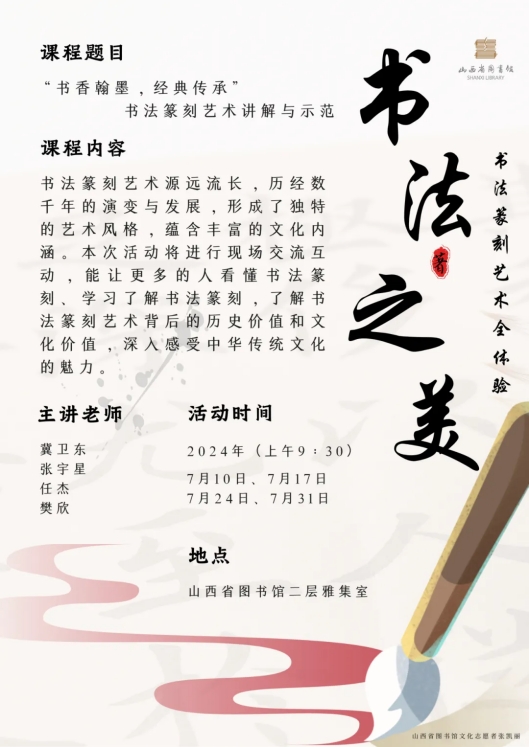 课程题目
“书香翰墨，经典传承”
书法篆刻艺术讲解与示范
课程内容
书法篆刻艺术源远流长，历经数
千年的演变与发展，形成了独特
的艺术风格，蕴含丰富的文化内
涵。本次活动将进行现场交流互
动，能让更多的人看懂书法篆
刻、学习了解书法篆刻，了解书
法篆刻艺术背后的历史价值和文
化价值，深入感受中华传统文化
的魅力。
主讲老师
冀卫东
张宇星
任杰
樊欣
活动时间
2024年（上午9：30）
7月10日、7月17日
7月24日、7月31日
地点
山西省图书馆二层雅集室
书法之美
书法篆刻艺术全体验
山西省图书馆
SHANXI LIBRARY
山西省图书馆文化志愿者张凯丽